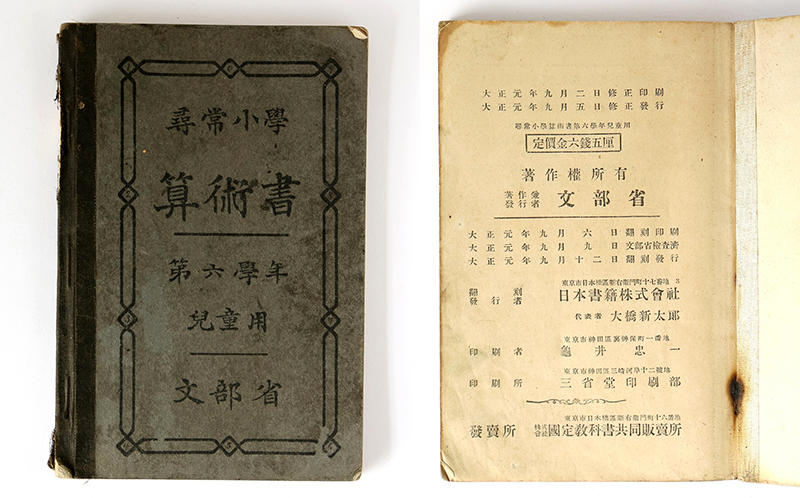 尋常小學
算術書
第六學年
兒童用
文部省
大正元年九月二日修正印刷
大正元年九月五日修正發行
尋常小學算術書第六學年兒童用
定價金六錢五厘
著作權所有
著作兼
發行者
文部省
大正元年九月六日翻刻印刷
大正元年九月九日文部省檢査濟
大正元年九月十二日翻刻發行
東京市日本橋區新右衞門町十七番地
翻刻
發行者
日本書籍株式會社
代表者 大橋新太郎
東京市神田區裏神保町一番地
印刷者 龜井忠一
東京市神田區三崎河岸十二號地
印刷所 三省堂印刷部
東京市日本橋區新右衞門町十六番地
發賣所 株式會社 國定敎科書共同販賣所